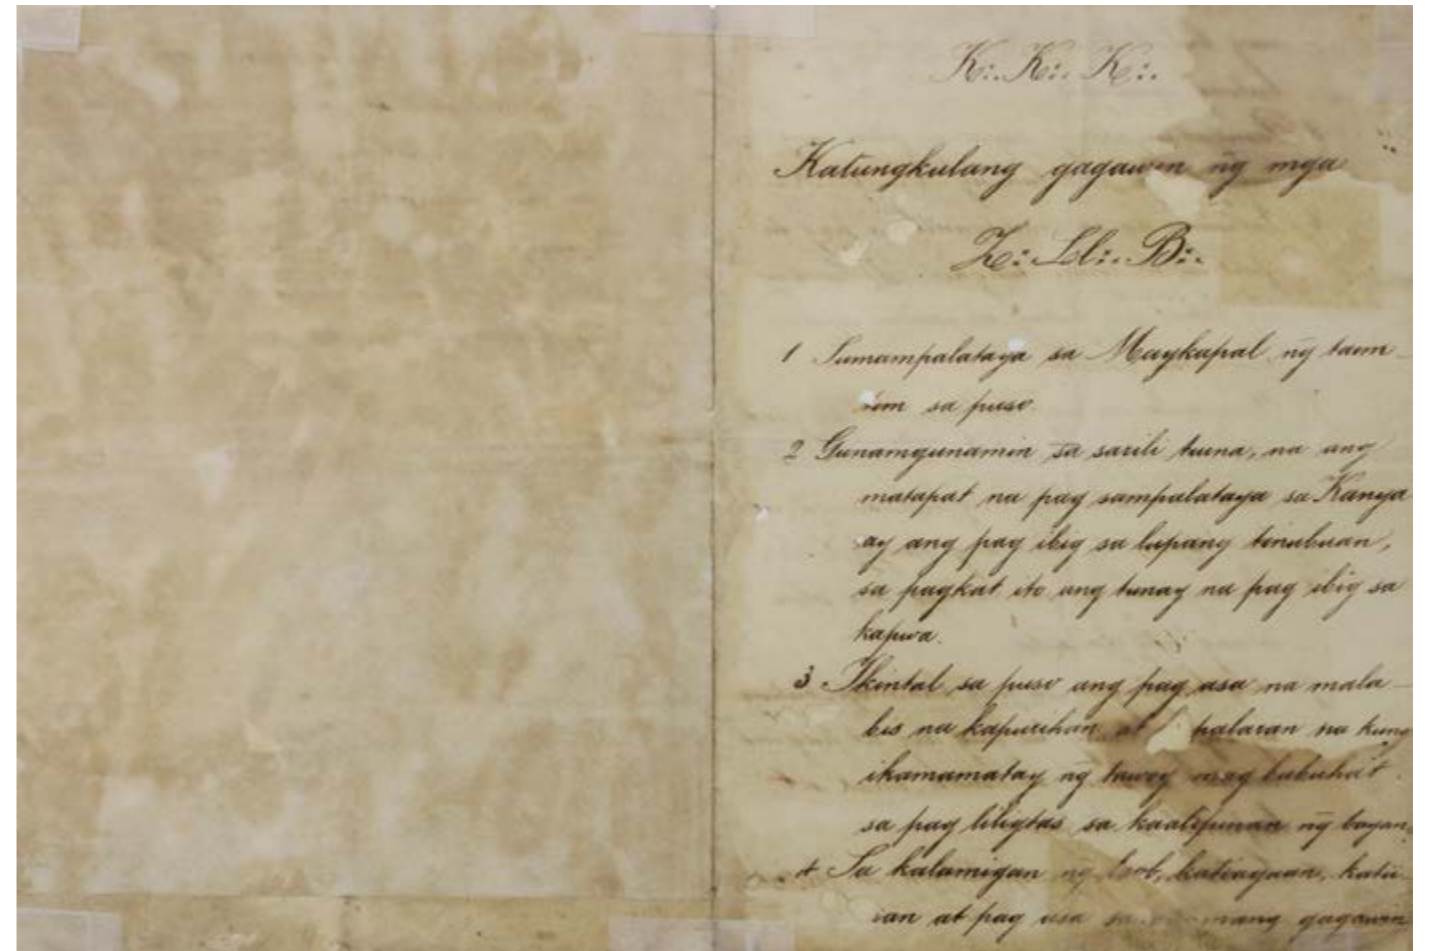 K∴ K∴ K∴
Katungkulang gagawin ng̃ mga
Z∴ Ll∴ B∴
1 Sumampalataya sa Maykapal ng̃ taim
tim sa puso.
2 Gunamgunamin sa sarili tuina, na ang
matapat na pag sampalataya sa Kanya
ay ang pag ibig sa lupang tinubuan,
sa pagkat ito ang tunay na pag ibig sa
kapwa.
3 Ikintal sa puso ang pag asa na mala
bis na kapurihan at palaran na kung
ikamamatay ng̃ tawoy
sa pag liligtas sa kaalipinan ng̃ bayan.
4 Sa kalamigan ng̃ loob, katiagaan, katu
iran at pag asa sa gagawin